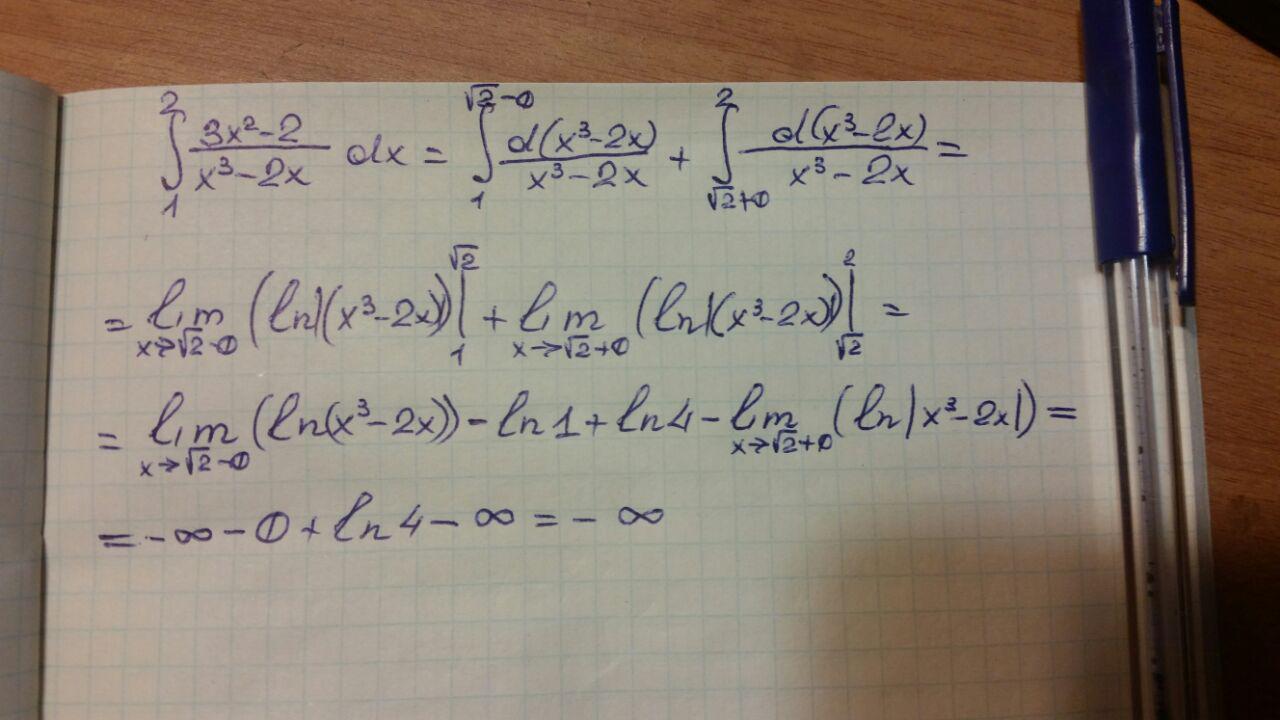 ∫₁² (3x²-2)/(x³-2x) dx = ∫₁^(√2-0) d(x³-2x)/(x³-2x) + ∫_(√2+0)^2 d(x³-2x)/(x³-2x) =
= lim_(x→√2-0) (ln|(x³-2x)|)|₁^√2 + lim_(x→√2+0) (ln|(x³-2x)|)|_√2^2 =
= lim_(x→√2-0) (ln(x³-2x)) - ln1 + ln4 - lim_(x→√2+0) (ln|x³-2x|) =
= -∞ - 0 + ln4 - ∞ = - ∞